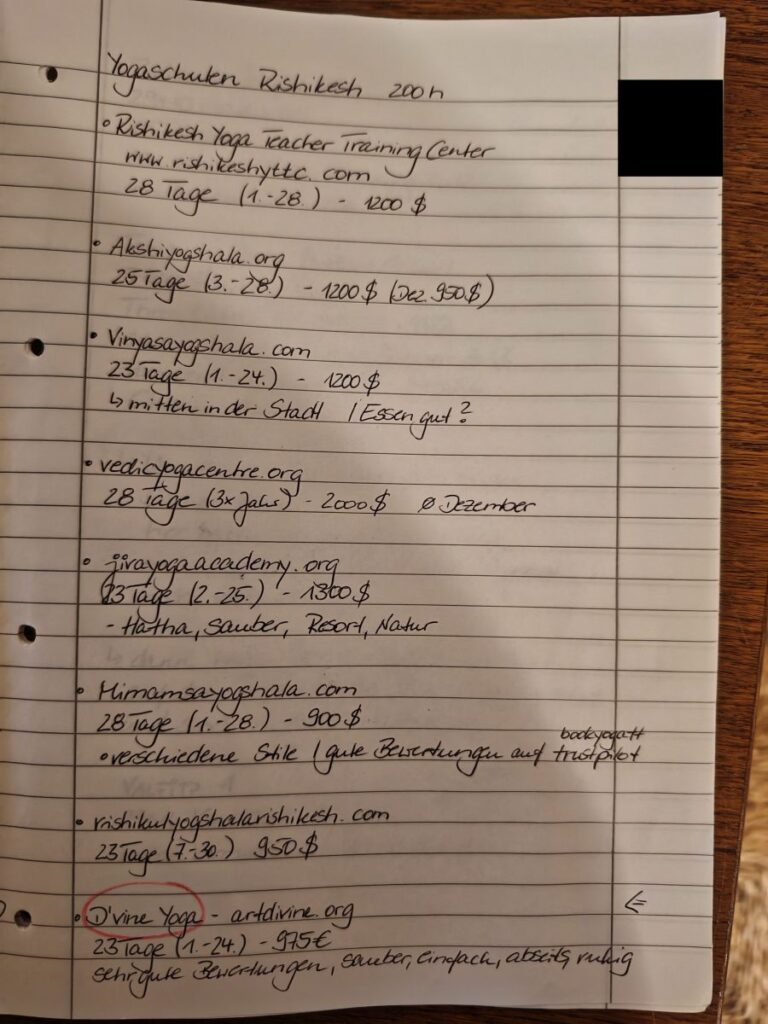 Yogaschulen Rishikesh 200h
• Rishikesh Yoga Teacher Training Center
www.rishikeshyttc.com
28 Tage (1.-28.) - 1200 $
• Akshiyogshala.org
25 Tage (3.-28.) - 1200 $ (Dez. 950 $)
• Vinyasayogshala.com
23 Tage (1.-24.) - 1200 $
↳ mitten in der Stadt / Essen gut?
• vedicyogacentre.org
28 Tage (3x Jahr) - 2000 $ Ø Dezember
• jivayogaacademy.org
23 Tage (2.-25.) - 1300 $
- Hatha, sauber, Resort, Natur
• Mimamsayogshala.com
28 Tage (1.-28.) - 900 $
bookyogatt
• verschiedene Stile / gute Bewertungen auf trustpilot
• rishikulyogshalarishikesh.com
23 Tage (7.-30.) 950 $
• D'vine Yoga - artdivine.org ⇐
23 Tage (1.-24.) - 975 €
sehr gute Bewertungen, sauber, einfach, abseits, ruhig